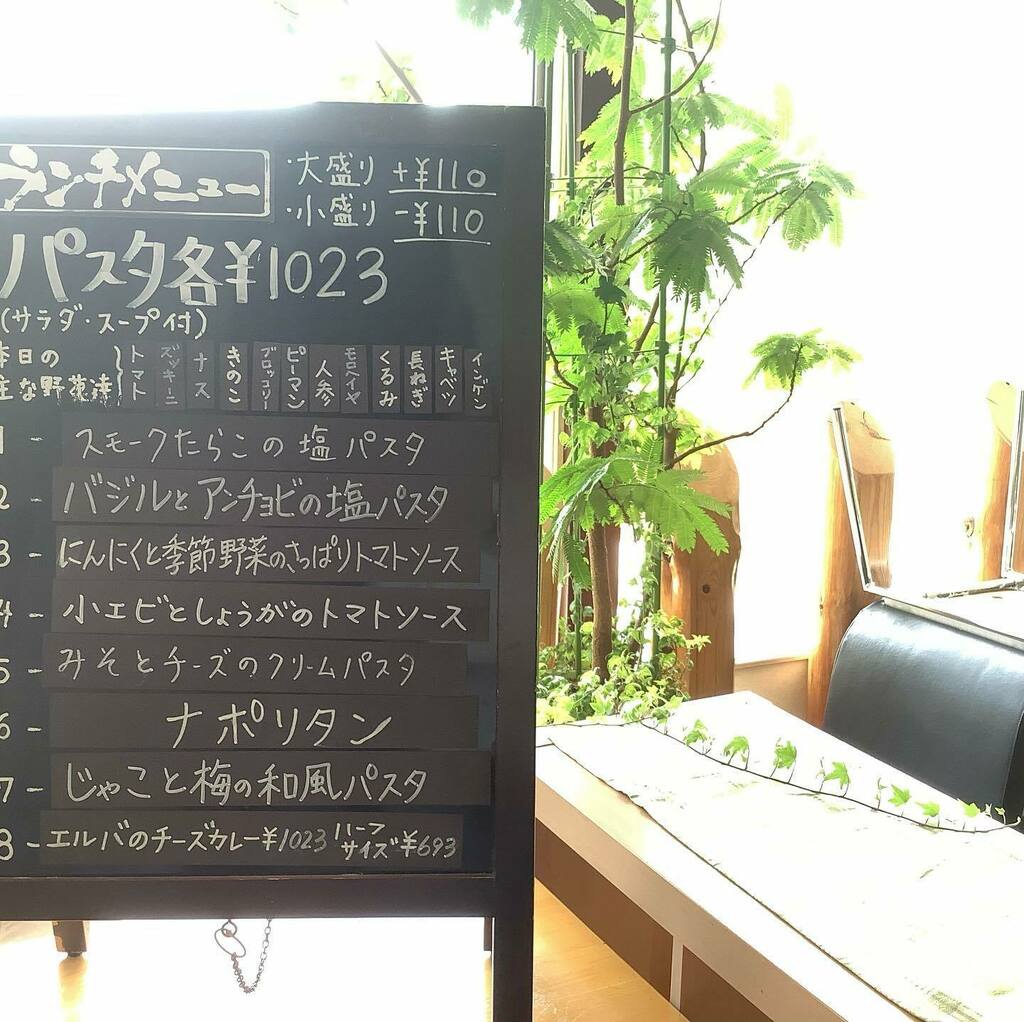 ランチメニュー
・大盛り +¥110
・小盛り -¥110
パスタ各¥1023
(サラダ・スープ付)
本日の
主な野菜達
トマト
ズッキーニ
ナス
きのこ
ブロッコリー
ピーマン
人参
モロヘイヤ
くるみ
長ねぎ
キャベツ
インゲン
1 - スモークたらこの塩パスタ
2 - バジルとアンチョビの塩パスタ
3 - にんにくと季節野菜のさっぱりトマトソース
4 - 小エビとしょうがのトマトソース
5 - みそとチーズのクリームパスタ
6 - ナポリタン
7 - じゃこと梅の和風パスタ
8 - エルバのチーズカレー¥1023 ハーフサイズ¥693